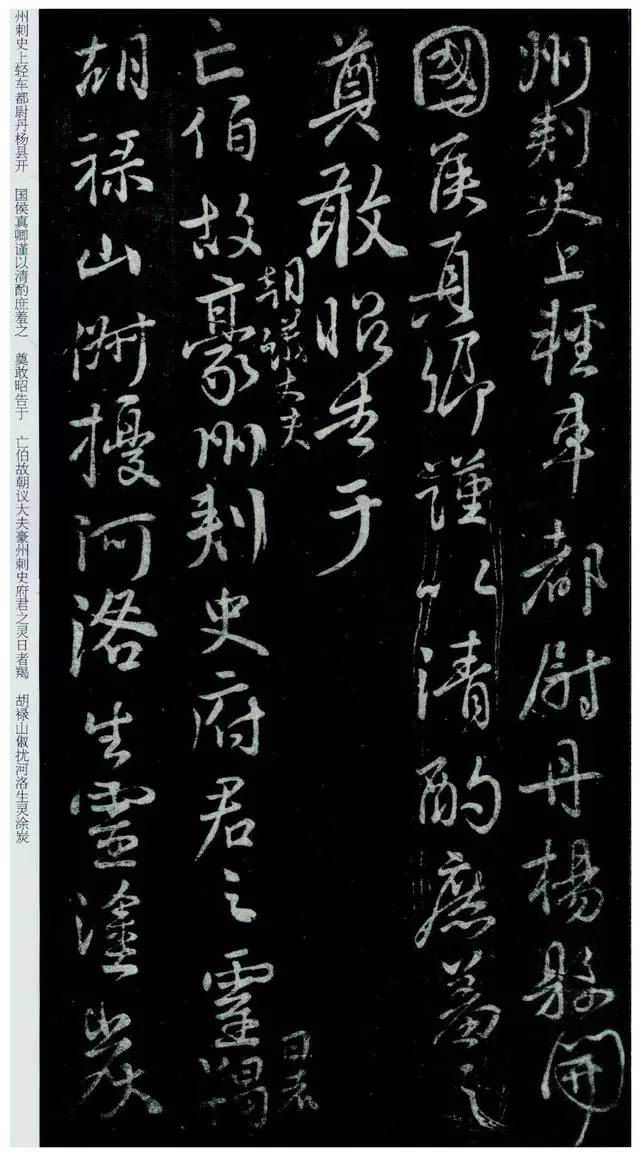 州刺史上輕車都尉丹楊縣開
國侯真卿謹以清酌庶羞之
奠敢昭告于
朝議大夫
日者
亡伯故豪州刺史府君之靈羯
胡祿山俶擾河洛生靈塗炭
州刺史上轻车都尉丹杨县开 国侯真卿谨以清酌庶羞之 奠敢昭告于 亡伯故朝议大夫豪州刺史府君之灵日者羯 胡禄山俶扰河洛生灵涂炭